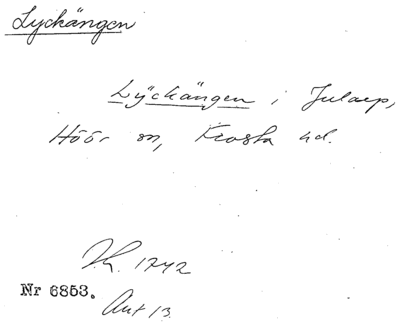 Lyckängen
Lÿckängen i Jularp,
Höör sn, Frosta hd.
Lh. 1742
Nr 6853.
Akt 13.